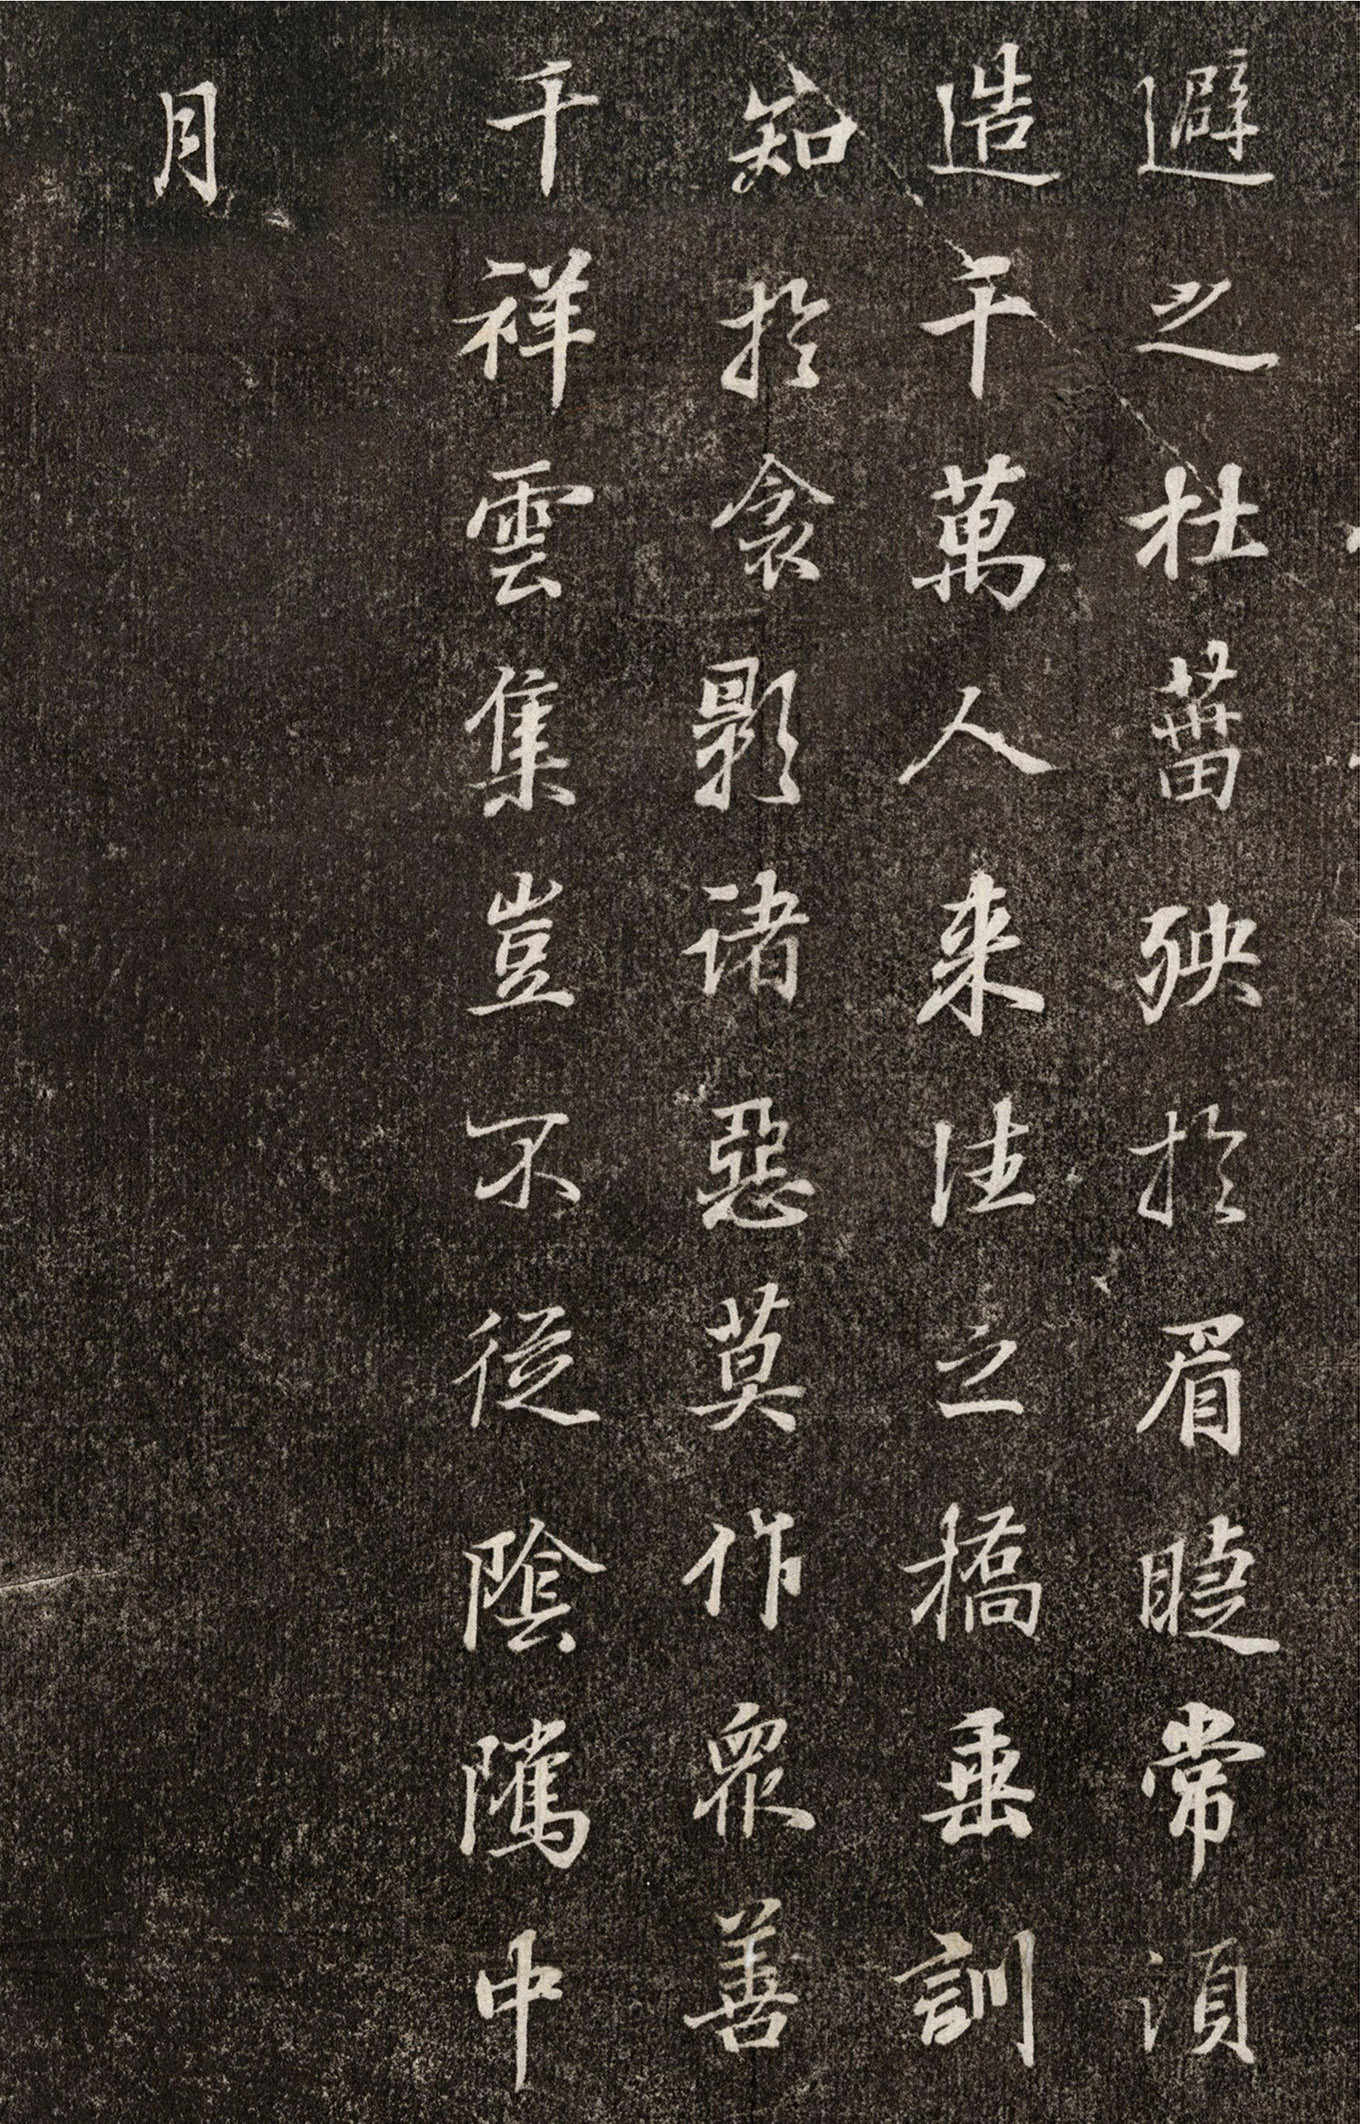 避之杜菑殃於眉睫常須
造千萬人来往之橋垂訓
知於衾影諸惡莫作眾善
千祥雲集豈不從陰騭中
月